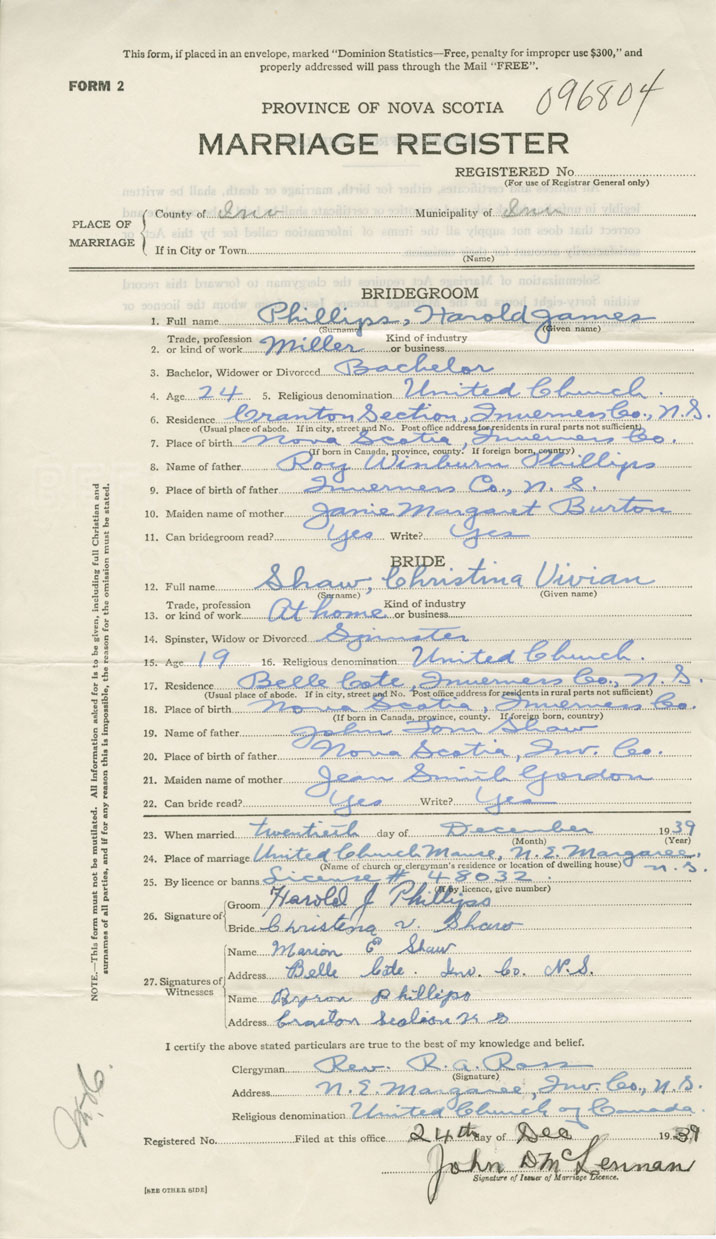 This form, if placed in an envelope, marked "Dominion Statistics—Free, penalty for improper use $300," and
properly addressed will pass through the Mail "FREE".
FORM 2
096804
PROVINCE OF NOVA SCOTIA
MARRIAGE REGISTER
REGISTERED No.
(For use of Registrar General only)
PLACE OF MARRIAGE
County of Inv Municipality of Inv
If in City or Town
(Name)
BRIDEGROOM
1. Full name Phillips, Harold James
(Surname) (Given name)
Trade, profession Kind of industry
2. or kind of work Miller or business
3. Bachelor, Widower or Divorced Bachelor
4. Age 24 5. Religious denomination United Church.
6. Residence Cranton Section, Inverness Co., N.S.
(Usual place of abode. If in city, street and No. Post office address for residents in rural parts not sufficient)
7. Place of birth Nova Scotia, Inverness Co.
(If born in Canada, province, county. If foreign born, country)
8. Name of father Roy Winburn Phillips
9. Place of birth of father Inverness Co., N.S.
10. Maiden name of mother Janie Margaret Burton
11. Can bridegroom read? Yes Write? Yes
BRIDE
12. Full name Shaw, Christina Vivian
(Surname) (Given name)
Trade, profession Kind of industry
13. or kind of work At home or business
14. Spinster, Widow or Divorced Spinster
15. Age 19 16. Religious denomination United Church.
17. Residence Belle Cote, Inverness Co., N.S.
(Usual place of abode. If in city, street and No. Post office address for residents in rural parts not sufficient)
18. Place of birth Nova Scotia, Inverness Co.
(If born in Canada, province, county. If foreign born, country)
19. Name of father John Tom Shaw
20. Place of birth of father Nova Scotia, Inv. Co.
21. Maiden name of mother Jean Smith Gordon
22. Can bride read? Yes Write? Yes
23. When married twentieth day of December 1939
(Month) (Year)
24. Place of marriage United Church Manse, N.E. Margaree, N.S.
(Name of church or clergyman's residence or location of dwelling house)
25. By licence or banns License # 48032.
(If by licence, give number)
26. Signature of
Groom Harold J Phillips
Bride Christena V. Shaw
27. Signatures of Witnesses
Name Marion E Shaw
Address Belle Cote. Inv. Co. N.S.
Name Byron Phillips
Address Cranton Section N S
I certify the above stated particulars are true to the best of my knowledge and belief.
Clergyman Rev. R. A. Ross
(Signature)
Address N.E. Margaree, Inv. Co., N.S.
Religious denomination United Church of Canada.
Registered No. Filed at this office 24th day of Dec 1939
John D McLennan
Signature of Issuer of Marriage Licence.
[SEE OTHER SIDE]
NOTE.—This form must not be mutilated. All information asked for is to be given, including full Christian and
surnames of all parties, and if for any reason this is impossible, the reason for the omission must be stated.